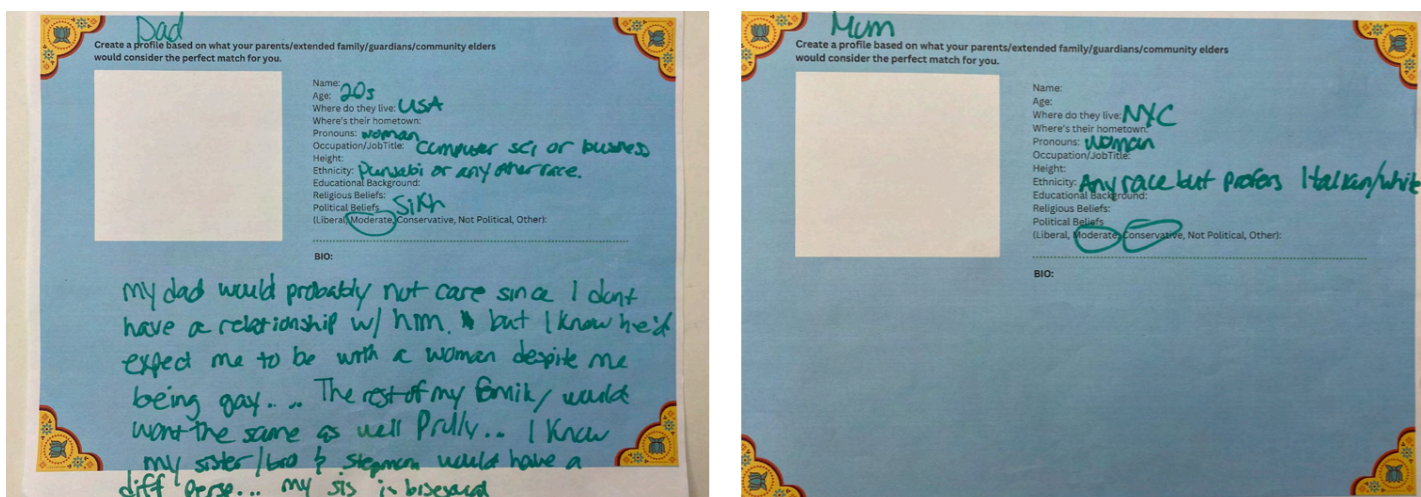 Dad
Create a profile based on what your parents/extended family/guardians/community elders
would consider the perfect match for you.
Name:
Age: 20s
Where do they live: USA
Where's their hometown:
Pronouns: woman
Occupation/JobTitle: Computer sci or business
Height:
Ethnicity: Punjabi or any other race.
Educational Background:
Religious Beliefs:
Political Beliefs Sikh
(Liberal, Moderate, Conservative, Not Political, Other):
BIO:
my dad would probably not care since I dont
have a relationship w/ him. but I know he'd
expect me to be with a woman despite me
being gay... The rest of my family would
want the same as well Prolly.. I know
my sister/bro & stepmom would have a
diff perse... my sis is bisexual
Mum
Create a profile based on what your parents/extended family/guardians/community elders
would consider the perfect match for you.
Name:
Age:
Where do they live: NYC
Where's their hometown:
Pronouns: woman
Occupation/JobTitle:
Height:
Ethnicity: Any race but prefers Italian/white
Educational Background:
Religious Beliefs:
Political Beliefs
(Liberal, Moderate, Conservative, Not Political, Other):
BIO: